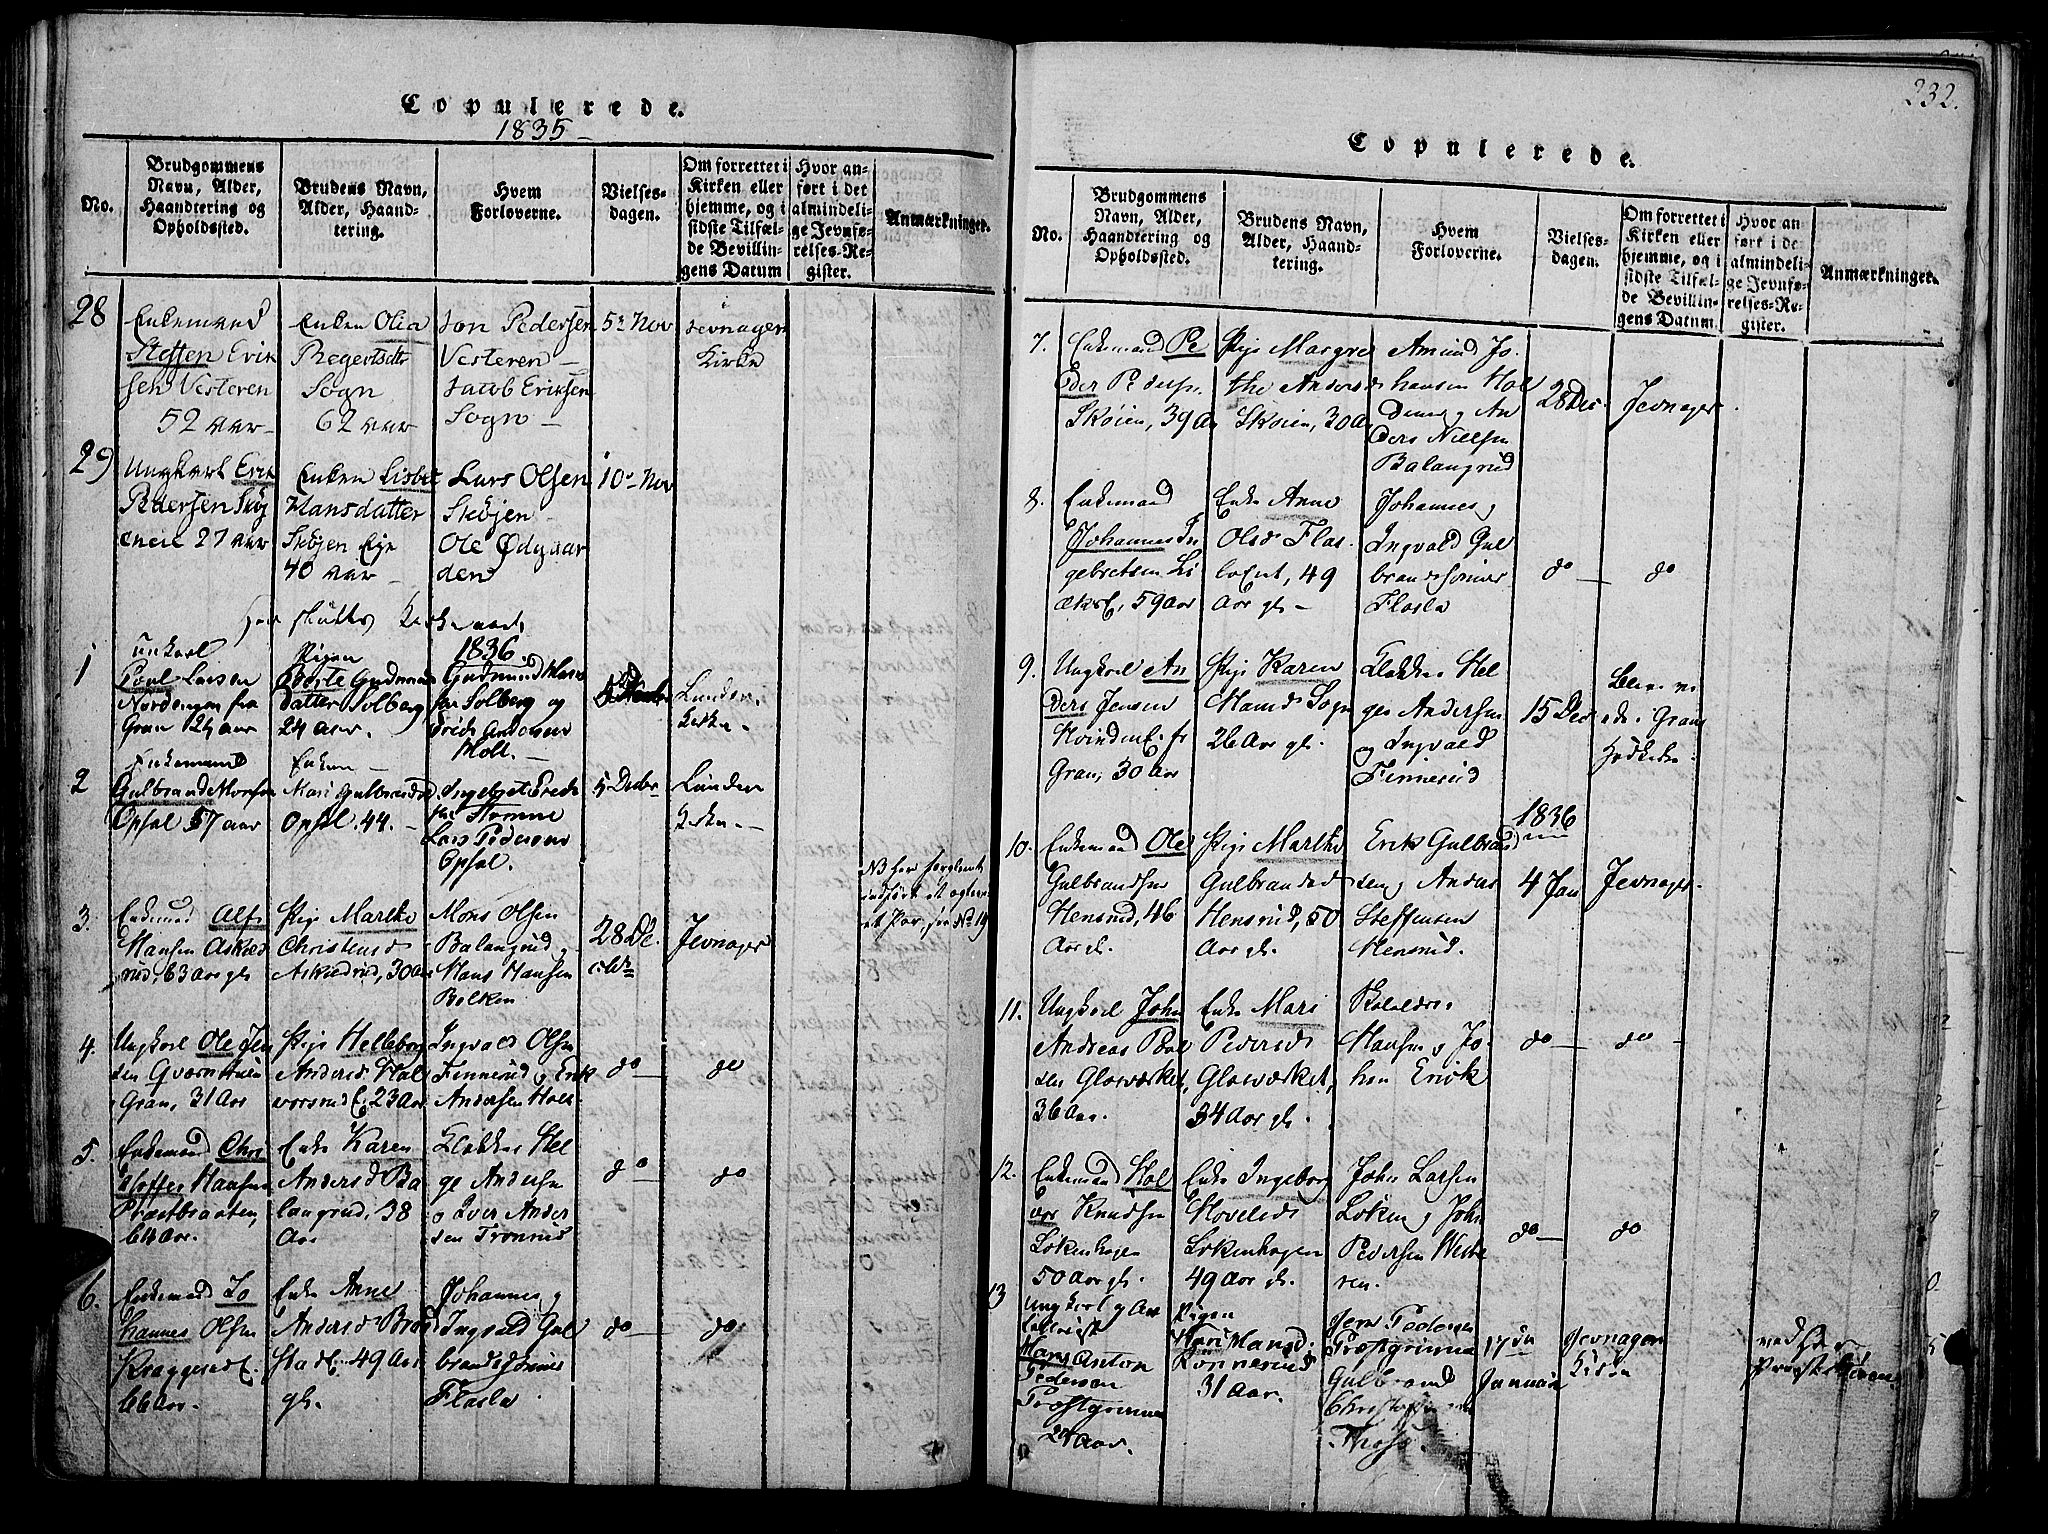 Copulerede.
1835
No.
Brudgommens Navn, Alder, Haandtering og Opholdssted.
Brudens Navn, Alder, Haandtering.
Hvem Forloverne.
Vielsesdagen.
Om forrettet i Kirken eller hjemme, og i sidste Tilfælde Bevillingens Datum
Hvor anført i det almindelige Jevnførelses-Register.
Anmærkninger.
28
Enkemand
Steffen Erik
sen Vesteren
52 aar
Enken Olia
Regertsdtr
Sogn
62 aar
Jon Pedersen
Vesteren
Jacob Eriksen
Sogn
5te Nov
i
Jevnager
Kirke
29
Ungkarl Erik
Pedersen Skøj
eneie 27 aar
Enken Lisbet
Hansdatter
Skøjen Eje
40 aar
Lars Olsen
Skøjen
Ole Ødgaar
den
10e Nov
1836.
1
Unkarl
Poul Larsen
Nordengen fra
Gran 24 aar
Pigen
Gudmunds
datter Solberg
24 aar.
Gudmund
Solberg og
Holt.
Lunder
Kirke
2
Enkemand
Gulbrand Hansen
Opsal 57 aar
Enken
Mari Gulbrandsd
Opsal. 44.
Lars Pedersen
Opsal.
5 Decbr
Lunder
Kirke
see No 19
3.
Enkemand Alf
Hansen Asked
rud, 63 Aar gl
Pige Marthe
Christensd
Askiedrud, 30 Aar
Mons Olsen
Balangrud
Hans Hansen
Bolken
28 De
Jevnager
4.
Ungkarl Ole Jen
sen
Gran, 31 Aar
Pige Helleborg
Andersd Hal
vorsrud E, 23 Aar
Ingvald Olsen
Finnerud og Erik
Andersen
do
do
5.
Enkemand Chri
stoffer Hansen
Præstbraaten,
64 Aar.
Enke Karen
Andersd Ba
langrud, 38
Aar
Klokker Hel
ge Andersen
og Iver Ander
sen Tronrud
do
do
6.
Enkemand Jo
hannes Olsen
66 Aar.
Enke Anne
Andersd
49 Aar
gl.
Johannes og
Ingvald Gul
brandsønner
Flasla
do
do
232.
Copulerede.
No.
Brudgommens Navn, Alder, Haandtering og Opholdssted.
Brudens Navn, Alder, Haandtering.
Hvem Forloverne.
Vielsesdagen.
Om forrettet i Kirken eller hjemme, og i sidste Tilfælde Bevillingens Datum.
Hvor anført i det almindelige Jevnførelses-Register.
Anmærkninger.
7.
Enkemand Pe
der Peders.
Skøien, 39 A
Pige Margre
the Andersd
Skøien, 30 Aar
Amund Jo
hansen Hol
og An
ders Nielsen
Balangrud
28 Dec.
Jevnager
8.
Enkemand
Johannes In
gebretsen
59 Aar
Enke Anne
Olsd Flas
49
Aar gl
Johannes og
Ingvald Gul
brandssønner
Flasla
do
do
9.
Ungkarl An
ders Jensen
Gran, 30 Aar
Pige Karen
Hansd Sogn
26 Aar gl.
Klokker Hel
ge Andersen
og Ingvald
Finnerud
15 Dec
10.
Enkemand Ole
Gulbrandsen
Hensrud, 46
Aar gl.
Pige Marthe
Gulbrandsd
Hensrud, 50
Aar gl.
Erik Gulbrand
sen og Anders
Steffensen
Hensrud.
1836
4 Jan
Jevnager
11.
Ungkarl John
Andreas
Gloværket,
36 Aar.
Enke Mari
Pedersd
Gloværket,
34 Aar gl.
Hansen og Jo
han Erick
do
do
12.
Enkemand Hal
vor Knudsen
Løkenhagen
50 Aar gl.
Enke Ingeborg
Løkenhagen
49 Aar gl.
John Larsen
Løken og John
Pedersen Veste
ren.
do
do
13
Ungkarl og
Hans Anton
Pedersen
24 Aar.
Pigen
Kari Hansd.
31 Aar.
Jens Pedersen
Gulbrand
17 de
Januar
Jevnager
Kirke